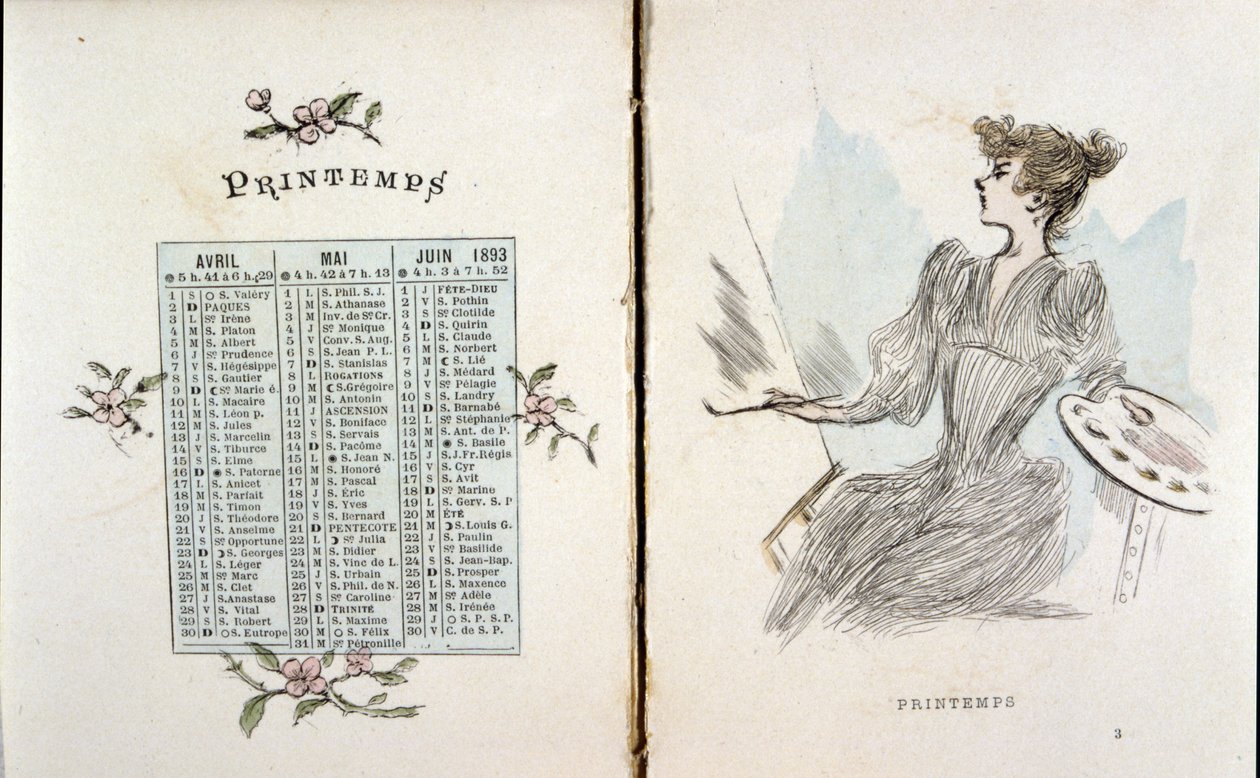 PRINTEMPS
AVRIL
5 h. 41 à 6 h. 29
1 S S. Valéry
2 D PAQUES
3 L Sᵉ Irène
4 M S. Platon
5 M S. Albert
6 J Sᵉ Prudence
7 V S. Hégésippe
8 S S. Gautier
9 D Sᵉ Marie é.
10 L S. Macaire
11 M S. Léon p.
12 M S. Jules
13 J S. Marcelin
14 V S. Tiburce
15 S S. Elme
16 D S. Paterne
17 L S. Anicet
18 M S. Parfait
19 M S. Timon
20 J S. Théodore
21 V S. Anselme
22 S Sᵉ Opportune
23 D S. Georges
24 L S. Léger
25 M Sᵉ Marc
26 M S. Clet
27 J S. Anastase
28 V S. Vital
29 S S. Robert
30 D S. Eutrope
MAI
4 h. 42 à 7 h. 13
1 L S. Phil. S. J.
2 M S. Athanase
3 M Inv. de Sᵉ Cr.
4 J Sᵉ Monique
5 V Conv. S. Aug.
6 S S. Jean P. L.
7 D S. Stanislas
8 L ROGATIONS
9 M S. Grégoire
10 M S. Antonin
11 J ASCENSION
12 V S. Boniface
13 S S. Servais
14 D S. Pacôme
15 L S. Jean N.
16 M S. Honoré
17 M S. Pascal
18 J S. Éric
19 V S. Yves
20 S S. Bernard
21 D PENTECOTE
22 L Sᵉ Julia
23 M S. Didier
24 M S. Vinc de L.
25 J S. Urbain
26 V S. Phil. de N.
27 S Sᵉ Caroline
28 D TRINITÉ
29 L S. Maxime
30 M S. Félix
31 M Sᵉ Pétronille
JUIN 1893
4 h. 3 à 7 h. 52
1 J FÊTE-DIEU
2 V S. Pothin
3 S Sᵉ Clotilde
4 D S. Quirin
5 L S. Claude
6 M S. Norbert
7 M S. Lié
8 J S. Médard
9 V Sᵉ Pélagie
10 S S. Landry
11 D S. Barnabé
12 L Sᵉ Stéphanie
13 M S. Ant. de P.
14 M S. Basile
15 J S. J. Fr. Régis
16 V S. Cyr
17 S S. Avit
18 D Sᵉ Marine
19 L S. Gerv. S. P
20 M ÉTÉ
21 M S. Louis G.
22 J S. Paulin
23 V Sᵉ Basilide
24 S S. Jean-Bap.
25 D S. Prosper
26 L S. Maxence
27 M Sᵉ Adèle
28 M S. Irénée
29 J S. P. S. P.
30 V C. de S. P.
PRINTEMPS
3